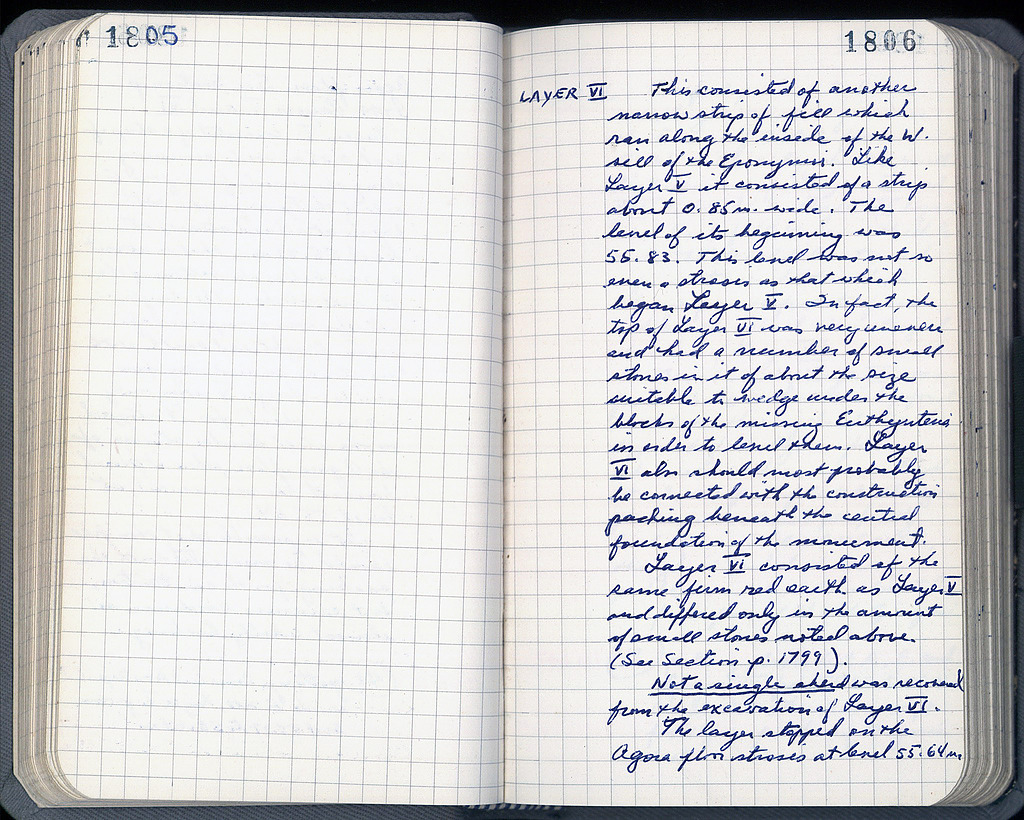 1805
1806
LAYER VI This consisted of another
narrow strip of fill which
ran along the inside of the W.
sill of the Eponymoi. Like
Layer V it consisted of a strip
about 0.85 m. wide. The
level of its beginning was
55.83. This level was not so
even a stroses as that which
began Layer V. In fact, the
top of Layer VI was very uneven
and had a number of small
stones in it of about the size
suitable to wedge under the
blocks of the missing Euthynteria
in order to level them. Layer
VI also should most probably
be connected with the construction
packing beneath the central
foundation of the monument.
Layer VI consisted of the
same firm red earth as Layer V
and differed only in the amount
of small stones noted above.
(See Section p. 1799).
Not a single sherd was recovered
from the excavation of Layer VI.
The layer stopped on the
Agora floor stroses at level 55.64 m